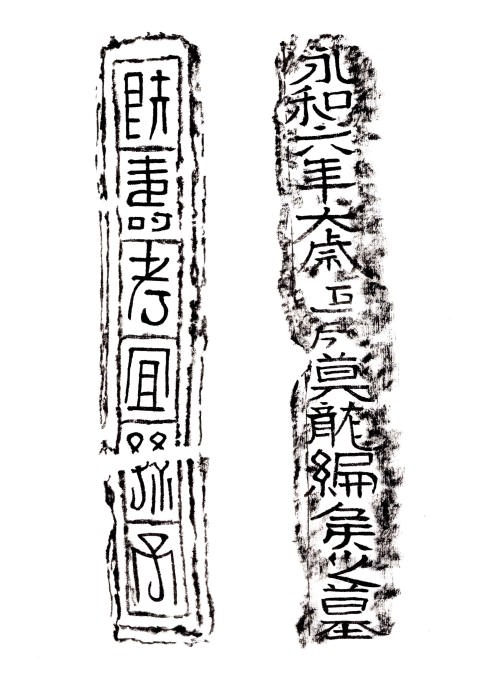 永和六年大歲莫龍編侯之墓
既壽考宜孫子